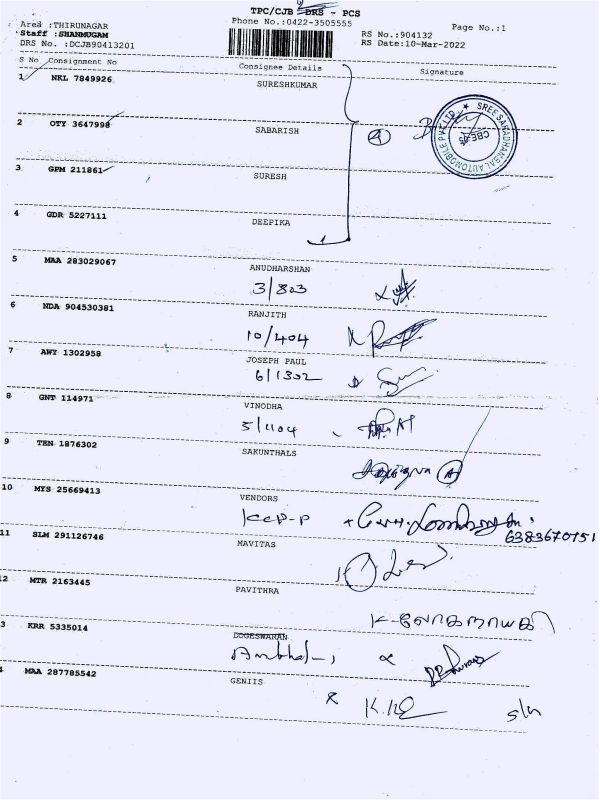 TPC/CJB DRS - PCS
Area :THIRUNAGAR
Phone No.:0422-3505555
Page No.:1
Staff :SHANMUGAM
RS No.:904132
DRS No. :DCJB90413201
RS Date:10-Mar-2022
S No Consignment No
Consignee Details
Signature
1 NKL 7849926
SURESHKUMAR
2 OTY 3647998
SABARISH
SREE SARADHAMBAL AUTOMOBILE PVT LTD ★
CBE-05
3 GPM 211861
SURESH
4 GDR 5227111
DEEPIKA
5 MAA 283029067
ANUDHARSHAN
3/803
6 NDA 904530381
RANJITH
10/404
7 AWY 1302958
JOSEPH PAUL
6/1302
8 GNT 114971
VINODHA
5/1104
9 TEN 1876302
SAKUNTHALS
10 MYS 25669413
VENDORS
KCP-P
6383670751
11 SLM 291126746
MAVITAS
2 MTR 2163445
PAVITHRA
K-லோகநாயகி
3 KRR 5335014
DOGESWARAN
4 MAA 287785542
GENIIS